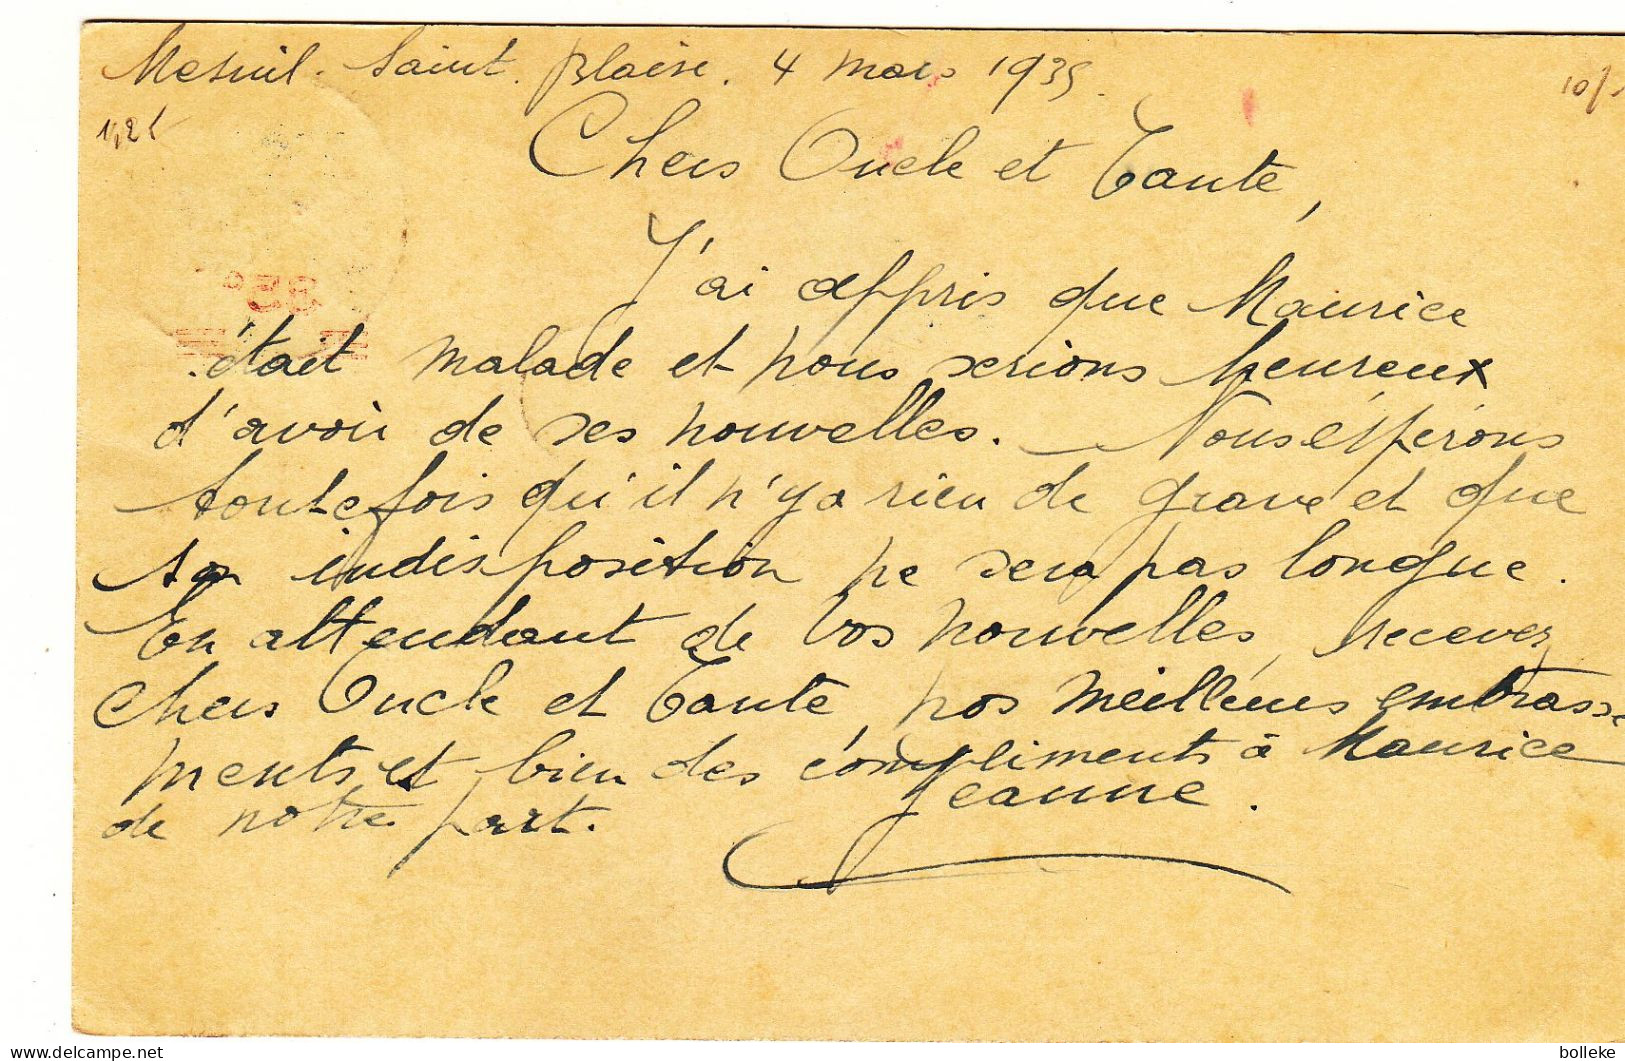 Mesnil. Saint. Blaise. 4 mars 1935.
10/-
1,25
Chers Oncle et Tante,
J'ai appris que Maurice
était malade et nous serions heureux
d'avoir de ses nouvelles. Nous espérons
toutefois qu'il n'y a rien de grave et que
son indisposition ne sera pas longue.
En attendant de vos nouvelles, recevez,
chers Oncle et Tante, nos meilleurs embrasse
ments et bien des compliments à Maurice
de notre part.
Jeanne.
bolleke